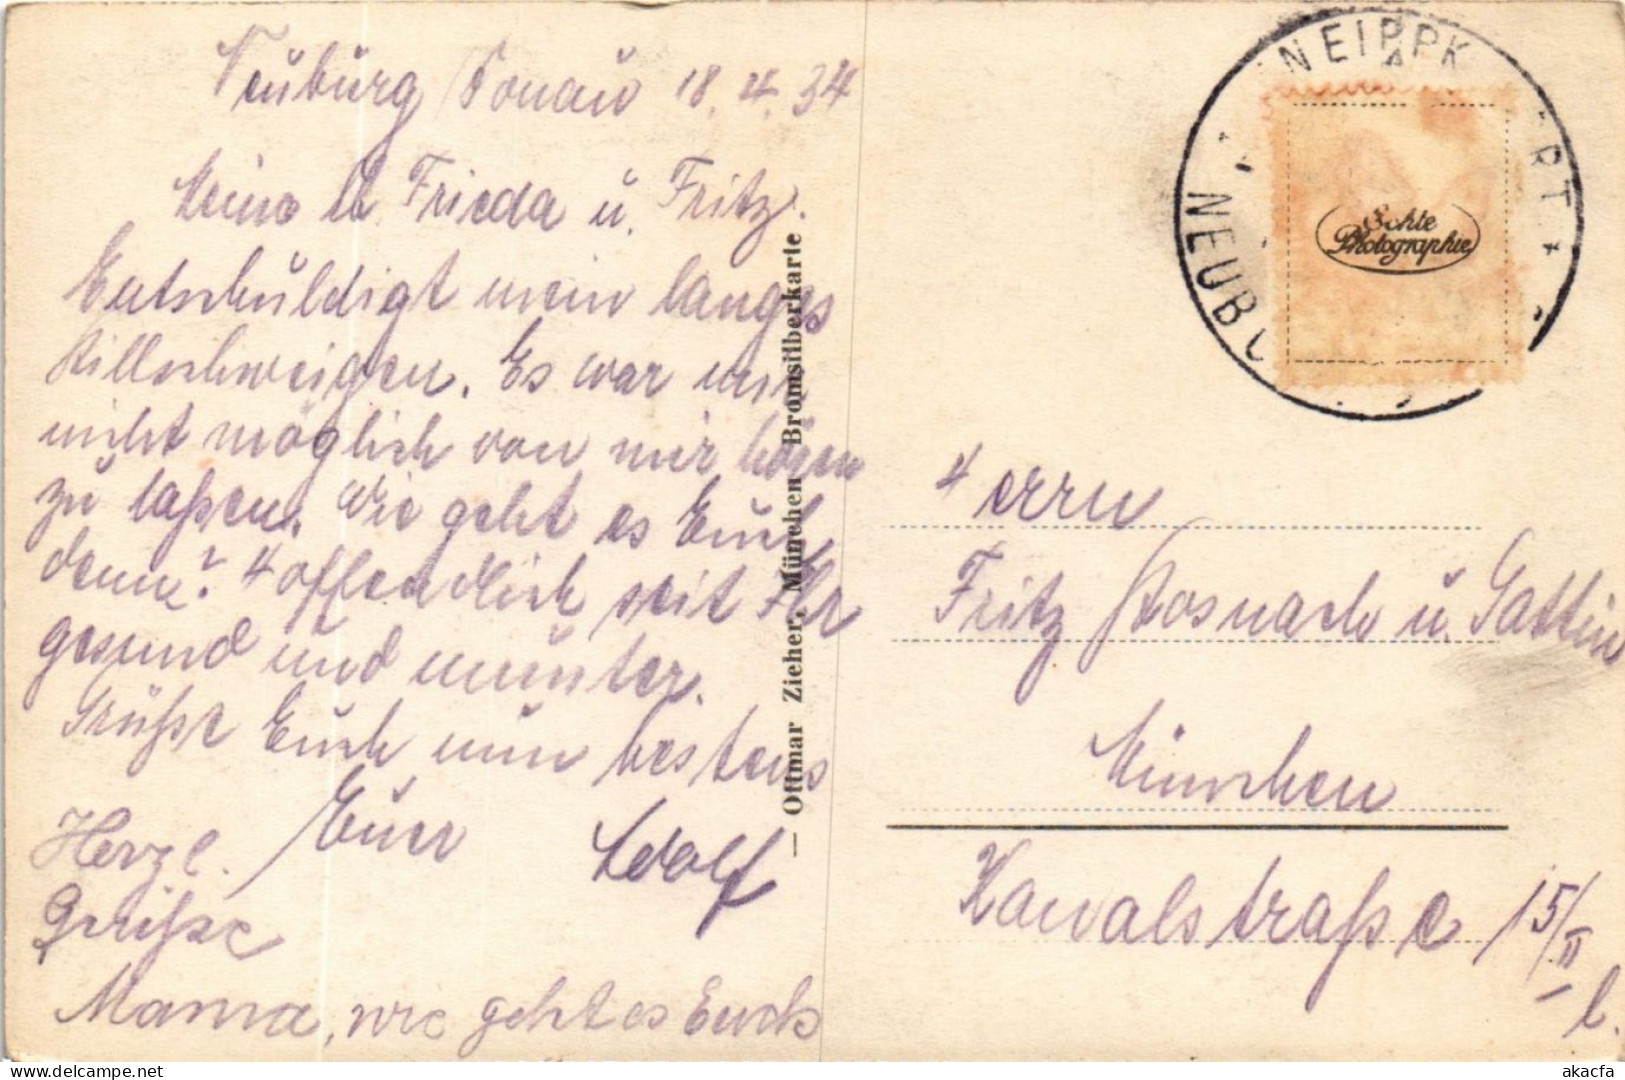 Neuburg Donau 18. 4. 34
Meine lb. Frieda u. Fritz.
Entschuldigt mein langes
Stillschweigen. Es war mir
nicht möglich von mir hören
zu laßen. Wie geht es Euch
denn? Hoffendlich seit Ihr
gesund und munter.
Grüßt Euch nun bestens
Euer Adolf
Herzl.
Grüße
Mama, wie geht es Euch
— Ottmar Zieher, München Bromsilberkarte
NEIPPK RT
NEUBU
Echte
Photographie
Herrn
Fritz u. Gattin
München
Kanalstraße 15/II
l.